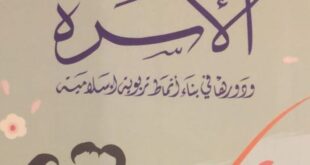 الأسرة
ودورها في بناء أنماط تربوية إسلامية